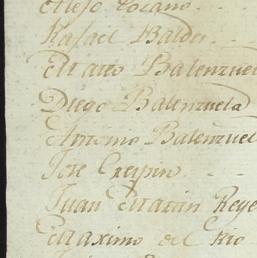 Alejo Lozano
Rafael Balder
Matteo Balenzuel
Diego Balenzuela
Antonio Balenzuel
Jose Crespin
Juan Martin Reye
Maximo del Rio